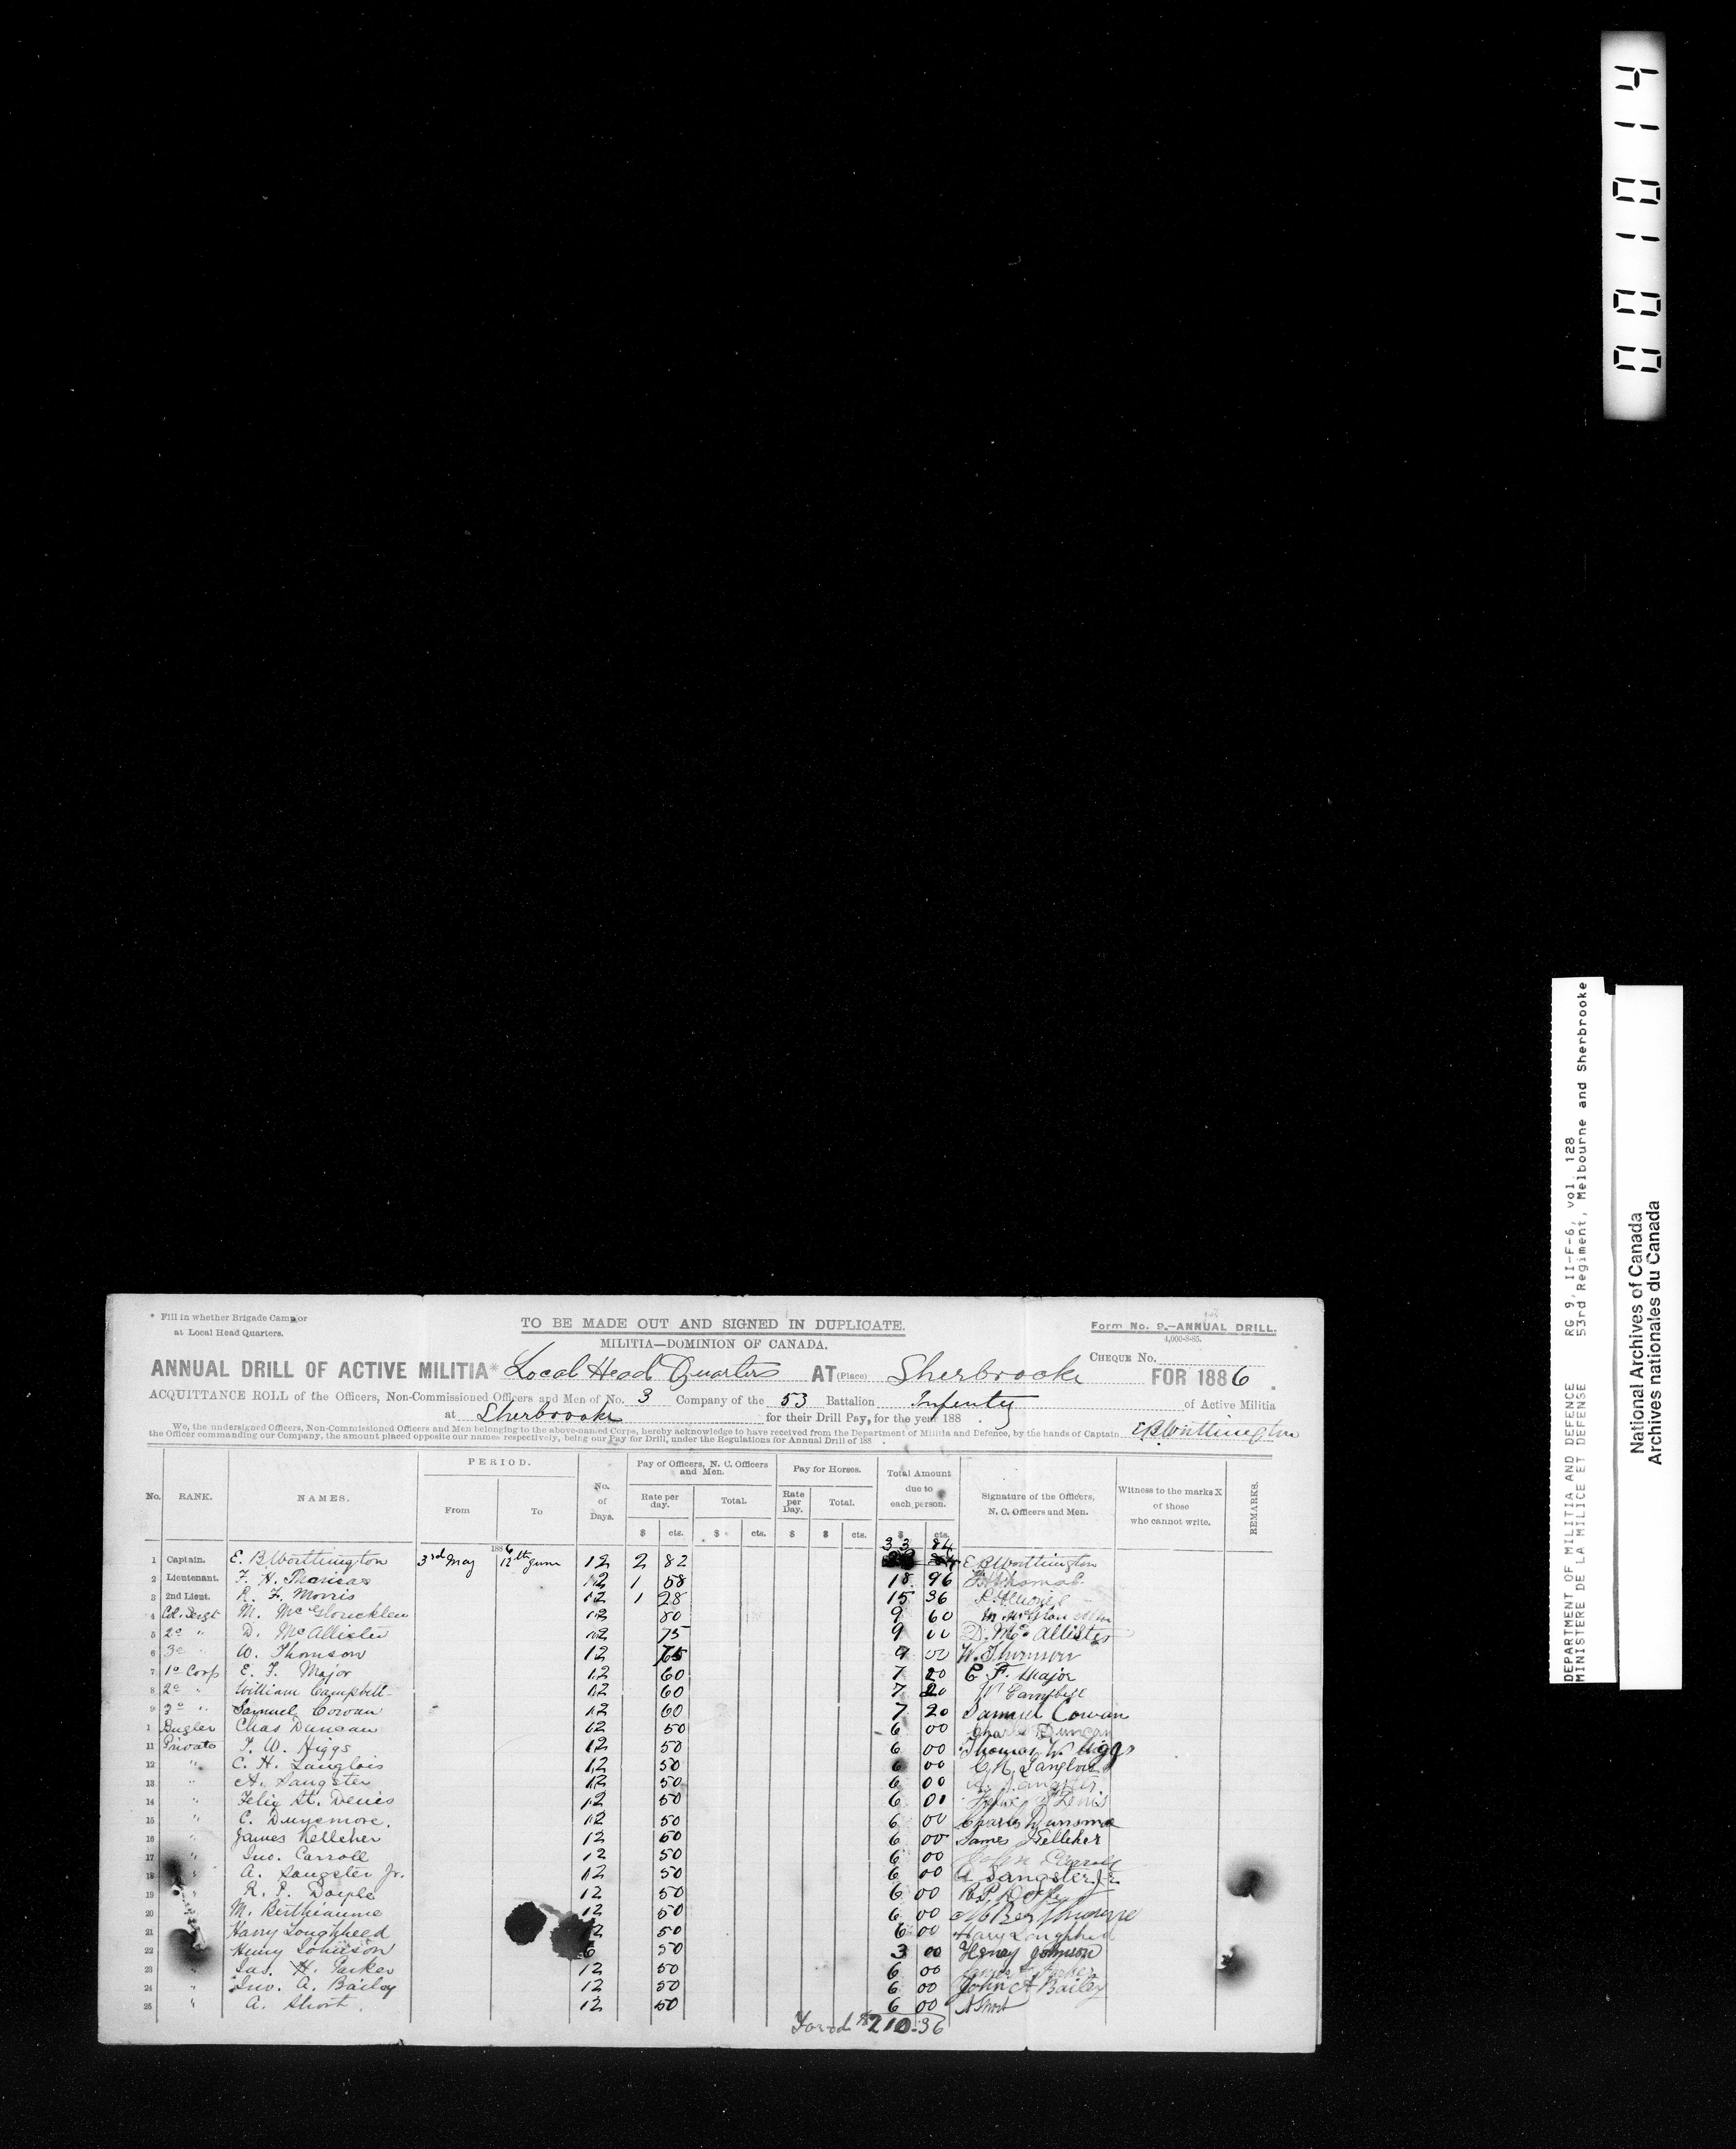 * Fill in whether Brigade Camp or
at Local Head Quarters.
TO BE MADE OUT AND SIGNED IN DUPLICATE.
Form No. 9.—ANNUAL DRILL.
4,000-8-85.
MILITIA—DOMINION OF CANADA.
CHEQUE No.
ANNUAL DRILL OF ACTIVE MILITIA* Local Head Quarters AT (Place) Sherbrooke FOR 1886.
ACQUITTANCE ROLL of the Officers, Non-Commissioned Officers and Men of No. 3 Company of the 53 Battalion Infentry of Active Militia
at Sherbrooke for their Drill Pay, for the year 188 .
We, the undersigned Officers, Non-Commissioned Officers and Men belonging to the above-named Corps, hereby acknowledge to have received from the Department of Militia and Defence, by the hands of Captain E B Worthington
the Officer commanding our Company, the amount placed opposite our names respectively, being our Pay for Drill, under the Regulations for Annual Drill of 188 .
No. RANK. NAMES. PERIOD. From To No. of Days. Pay of Officers, N. C. Officers and Men. Rate per day. $ cts. Total. $ cts. Pay for Horses. Rate per Day. $ Total. $ cts. Total Amount due to each person. $ cts. Signature of the Officers, N. C. Officers and Men. Witness to the marks X of those who cannot write. REMARKS.
1886 33 84
1 Captain. E. B Worthington 3rd May 12th June 12 2 82 E B Worthington
2 Lieutenant. F. H. Thomas 12 1 58 18 96 F H Thomas
3 2nd Lieut. R. F. Morris 12 1 28 15 36
4 Col. Sergt M. 12 80 9 60
5 2e " D. McAllister 12 75 9 00 D. McAllister
6 3e " W. Thomson 12 75 9 00 W. Thomson
7 1e Corp E. F. Major 12 60 7 20 E. F. Major
8 2e " William Campbell 12 60 7 20 W Campbell
9 3e " Samuel Cowan 12 60 7 20 Samuel Cowan
1 Bugler Chas Duncan 12 50 6 00 Duncan
11 Private T. W. Higgs 12 50 6 00 Thomas W. Higgs
12 " C. H. Langlois 12 50 6 00 C. H. Langlois
13 " A. Sangster 12 50 6 00 A. Sangster
14 " Felix St. Denis 12 50 6 00 Felix St Denis
15 " C. Dunsmore. 12 50 6 00 Charles Dunsmore
16 " James Kelleher 12 50 6 00 James Kelleher
17 " Jno. Carroll 12 50 6 00 John Carroll
18 " A. Sangster Jr. 12 50 6 00 A Sangster Jr
19 " R. P. Doyle 12 50 6 00 R. P. Doyle
20 " M. Bertheaume 12 50 6 00
21 " Harry Loughheed 12 50 6 00 Harry Loughheed
22 " Henry Johnson 6 50 3 00 Henry Johnson
23 " Jas. H. Parker 12 50 6 00
24 " Jno. A. Bailey 12 50 6 00 John A Bailey
25 " A. Short. 12 50 6 00 A Short
Forod $210.36
001014
DEPARTMENT OF MILITIA AND DEFENSE RG 9, II-F-6, vol. 128
MINISTERE DE LA MILICE ET DEFENSE 53rd Regiment, Melbourne and Sherbrooke
National Archives of Canada
Archives nationales du Canada